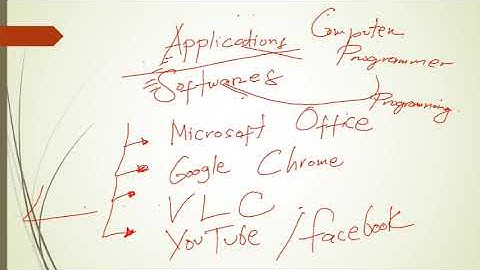 Applications Computer
Programmer
Softwares
Programming
Microsoft Office
Google Chrome
VLC
YouTube / facebook